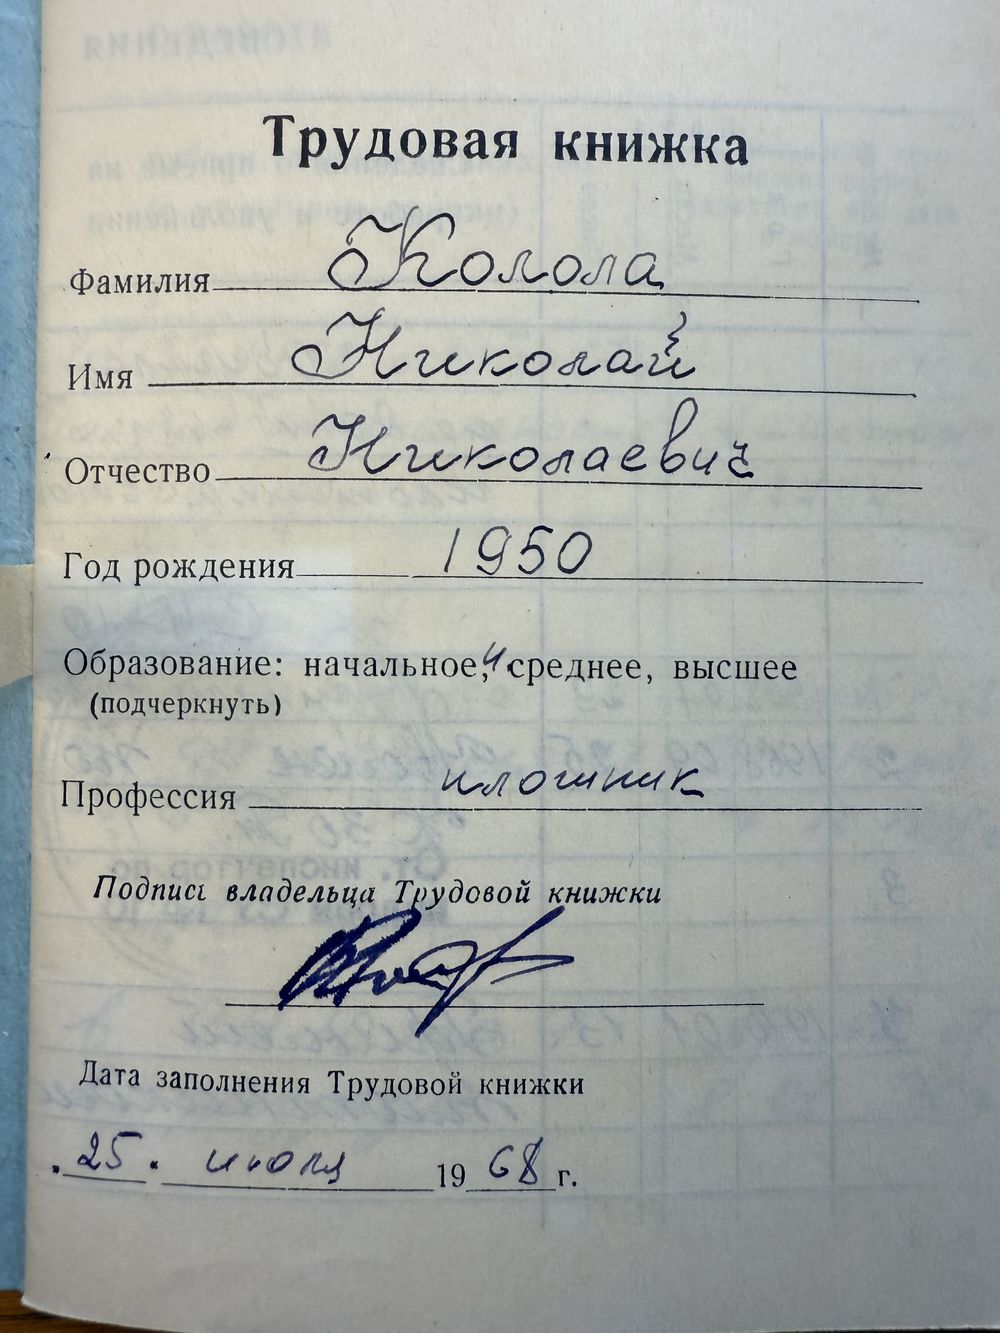 Трудовая книжка
Фамилия Колола
Имя Николай
Отчество Николаевич
Год рождения 1950
Образование: начальное, среднее, высшее
(подчеркнуть)
Профессия
Подпись владельца Трудовой книжки
Дата заполнения Трудовой книжки
"25" июля 1968 г.